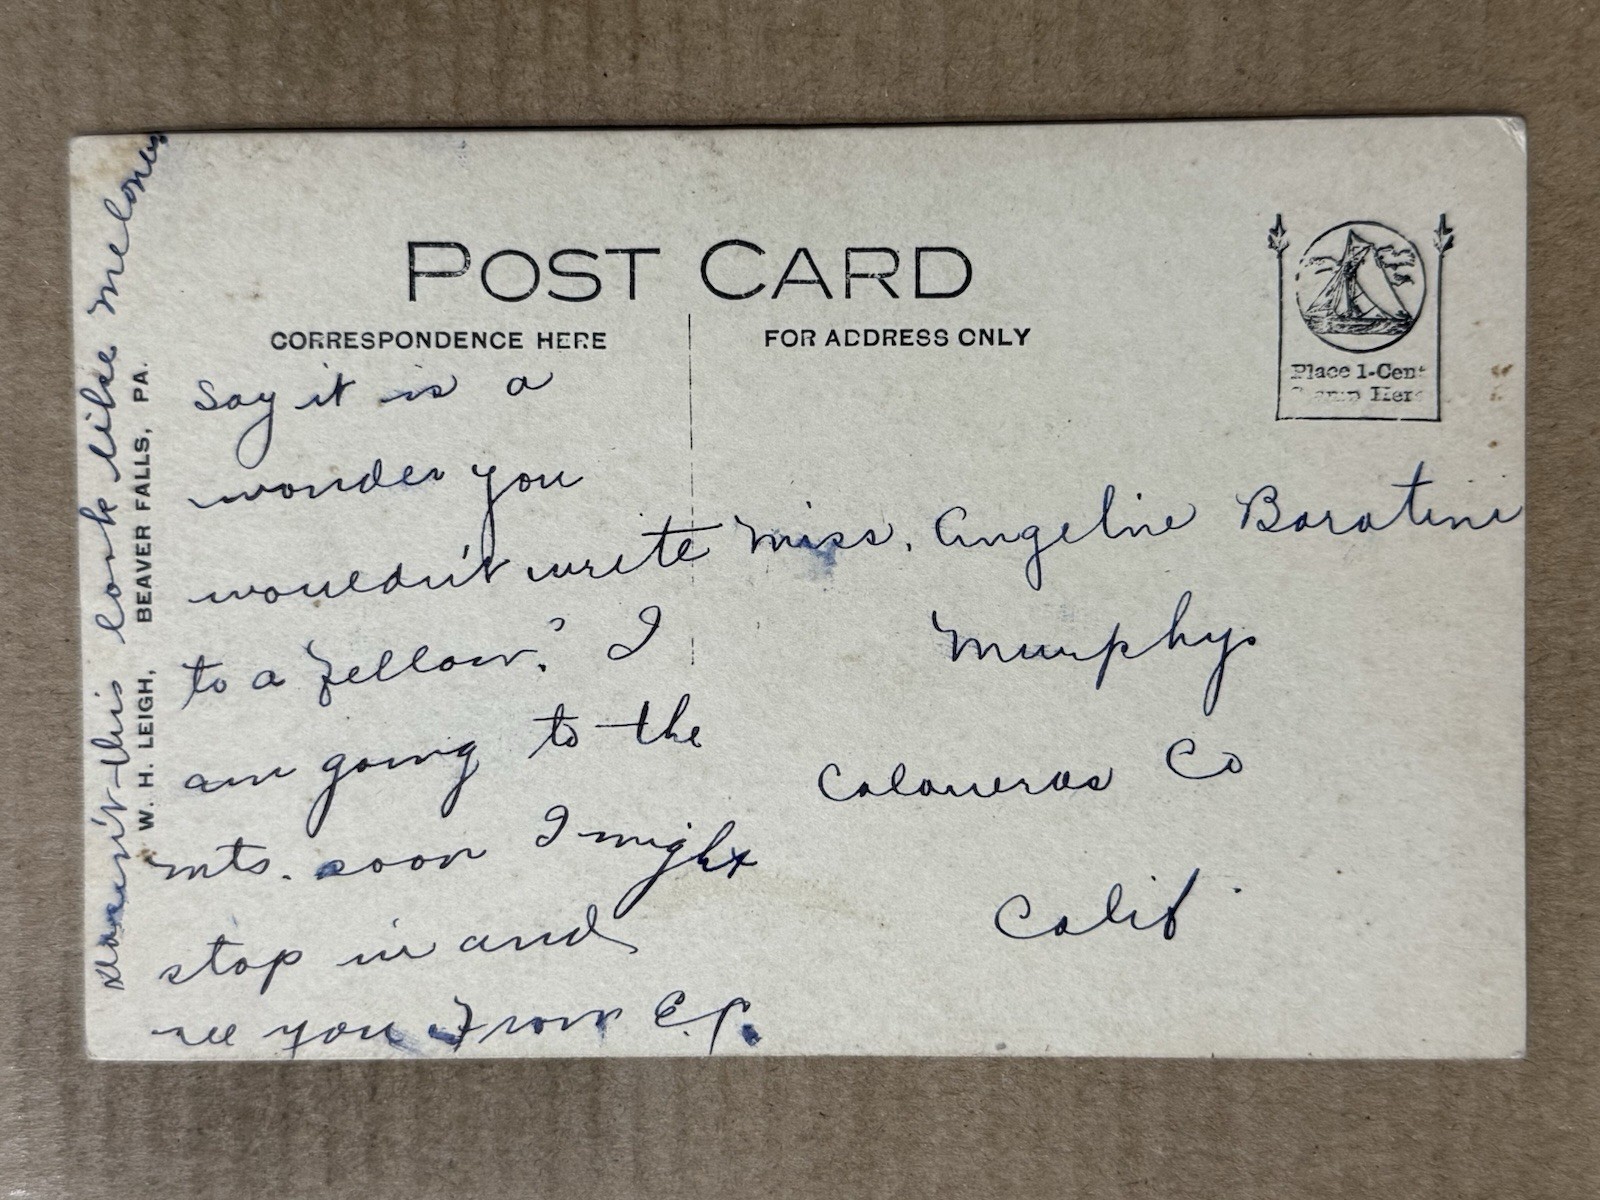 POST CARD
CORRESPONDENCE HERE
FOR ADDRESS ONLY
Place 1-Cent
Stamp Here
Say it is a
wonder you
wouldn't write
to a fellow? I
am going to the
mts. soon I might
stop in and
see you From E.P.
Miss. Angeline Baratini
Murphys
Calaveras Co
Calif.
Doesn't this look like melones
W. H. LEIGH, BEAVER FALLS, PA.